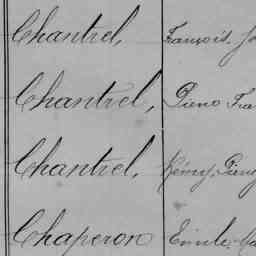 Chantrel, François. Jo
Chantrel, Pierre Fra
Chantrel, Rémy, Pierre
Chaperon Emile. Ma